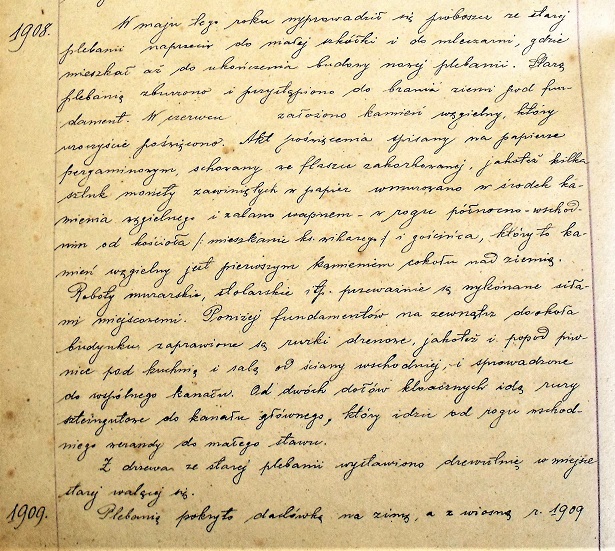 1908. W maju tego roku wyprowadził się proboszcz ze starej
plebanii naprzeciw do małej szkółki i do mleczarni, gdzie
mieszkał aż do ukończenia budowy nowej plebanii. Starą
plebanię zburzono i przystąpiono do brania ziemi pod fun-
dament. W czerwcu założono kamień węgielny, który
uroczyście poświęcono. Akt poświęcenia spisany na papierze
pergaminowym, schowany we flaszce zakorkowanej, jakoteż kilka
sztuk monety zawiniętych w papier wmurowano w środek ka-
mienia węgielnego i zalano wapnem - w rogu północno-wschod-
nim od kościoła /: mieszkanie ks. wikarego/ i gościńca, który to ka-
mień węgielny jest pierwszym kamieniem cokołu nad ziemią.
Roboty murarskie, stolarskie itp. przeważnie są wykonane siła-
mi miejscowemi. Poniżej fundamentów na zewnątrz dookoła
budynku zaprawione są rurki drenowe, jakoteż i popod piw-
nice pod kuchnią i salą od ściany wschodniej, i sprowadzone
do wspólnego kanału. Od dwóch dołów kloacznych idą rury
sztaingutowe do kanału głównego, który idzie od rogu wschod-
niego werandy do małego stawu.
Z drzewa ze starej plebanii wystawiono drewutnię w miejsce
starej walącej się.
1909. Plebanię pokryto dachówką na zimę, a z wiosną r. 1909